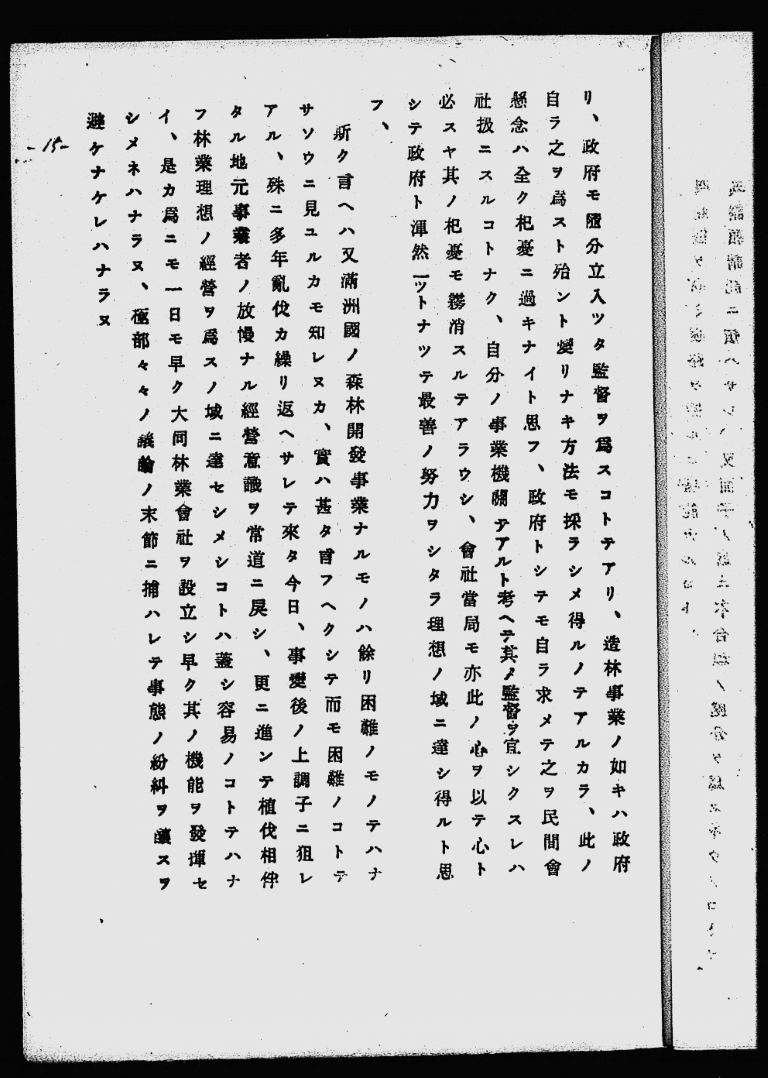 リ、政府モ隨分立入ツタ監督ヲ爲スコトテアリ、造林事業ノ如キハ政府
自ラ之ヲ爲スト殆ント變リナキ方法モ採ラシメ得ルノテアルカラ、此ノ
懸念ハ全ク杞憂ニ過キナイト思フ、政府トシテモ自ラ求メテ之ヲ民間會
社扱ニスルコトナク、自分ノ事業機關テアルト考ヘテ其ノ監督ヲ宜シクスレハ
必スヤ其ノ杞憂モ霧消スルテアラウシ、會社當局モ亦此ノ心ヲ以テ心ト
シテ政府ト渾然一ツトナツテ最善ノ努力ヲシタラ理想ノ域ニ達シ得ルト思
フ、
斯ク言ヘハ又滿洲國ノ森林開發事業ナルモノハ餘リ困難ノモノテハナ
サソウニ見ユルカモ知レヌカ、實ハ甚タ言フヘクシテ而モ困難ノコトテ
アル、殊ニ多年亂伐カ繰リ返ヘサレテ來タ今日、事變後ノ上調子ニ狃レ
タル地元事業者ノ放慢ナル經營意識ヲ常道ニ戾シ、更ニ進ンテ植伐相伴
フ林業理想ノ經營ヲ爲スノ域ニ達セシメシコトハ蓋シ容易ノコトテハナ
イ、是カ爲ニモ一日モ早ク大同林業會社ヲ設立シ早ク其ノ機能ヲ發揮セ
シメネハナラヌ、極部々々ノ議論ノ末節ニ捕ハレテ事態ノ紛糾ヲ釀スヲ
避ケナケレハナラヌ
-15-